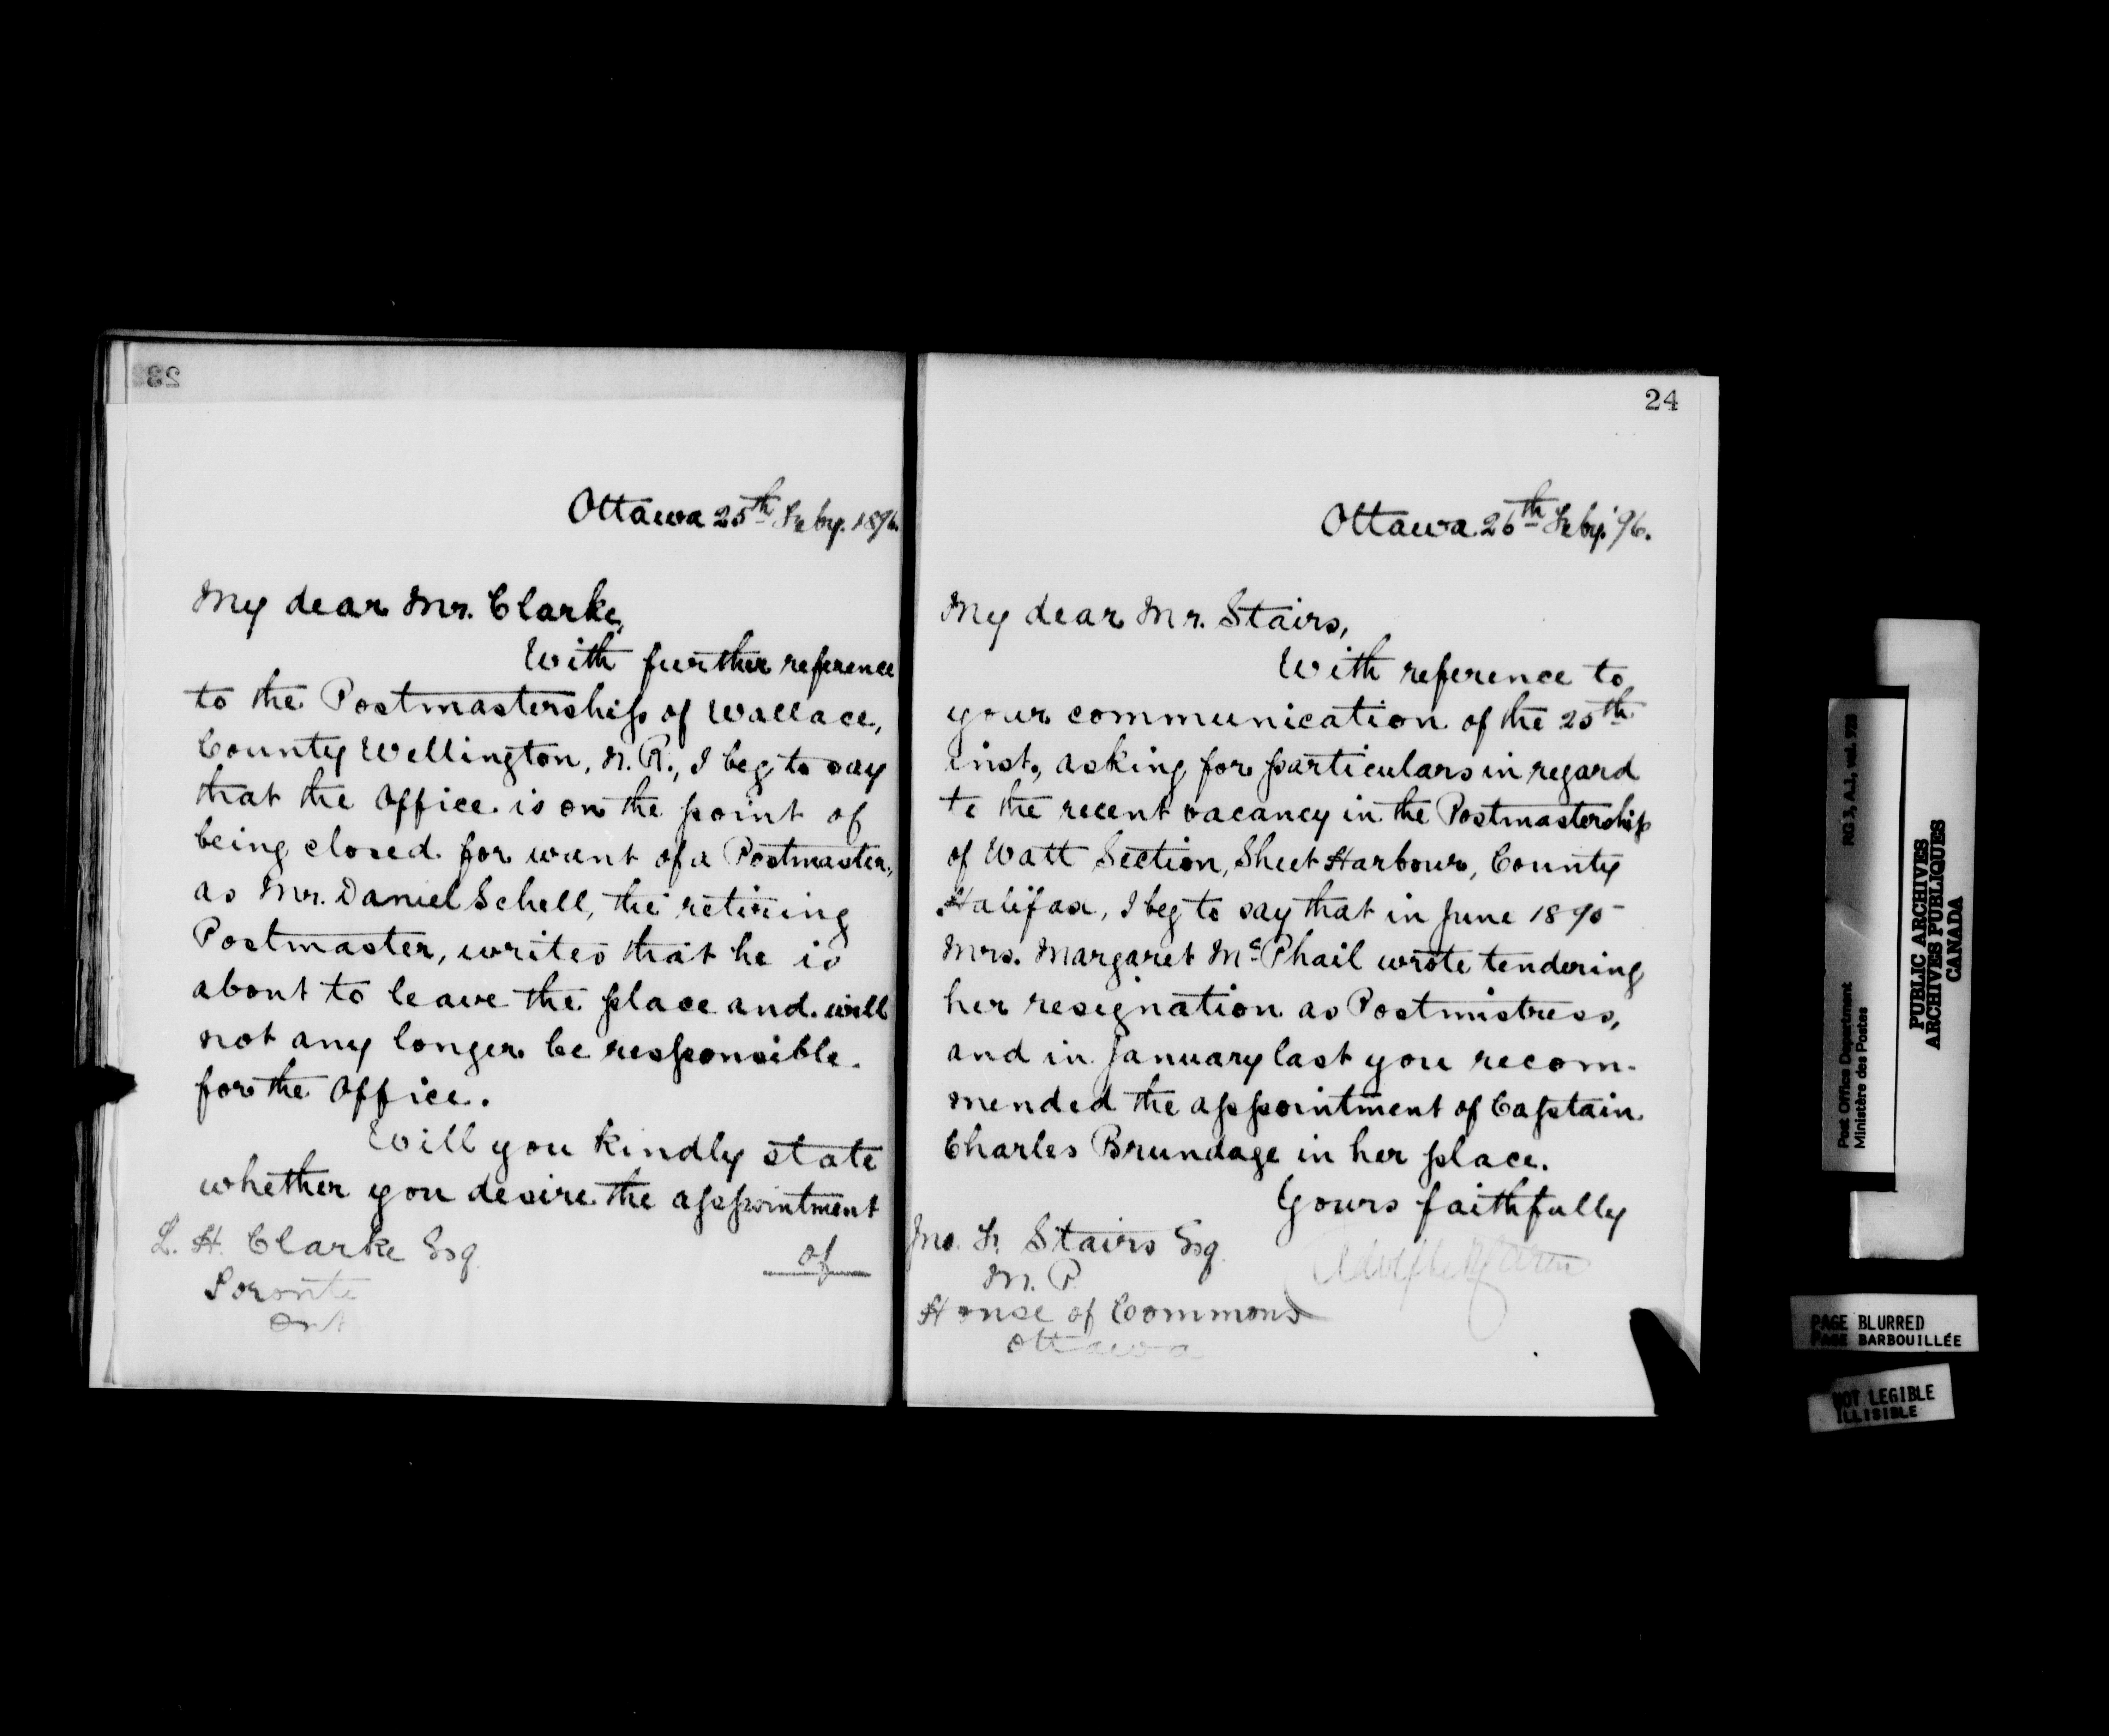 23
Ottawa 25th Feby. 1896.
My dear Mr. Clarke,
With further reference
to the Postmastership of Wallace,
County Wellington, N. R., I beg to say
that the Office is on the point of
being closed for want of a Postmaster,
as Mr. Daniel Schell, the retiring
Postmaster, writes that he is
about to leave the place and will
not any longer be responsible
for the Office.
Will you kindly state
whether you desire the appointment
of
L. H. Clarke Esq
Toronto
Ont
24
Ottawa 26th Feby. '96.
My dear Mr. Stairs,
With reference to
your communication of the 25th
inst., asking for particulars in regard
to the recent vacancy in the Postmastership
of Watt Section, Sheet Harbour, County
Halifax, I beg to say that in June 1895
Mrs. Margaret McPhail wrote tendering
her resignation as Postmistress,
and in January last you recom-
mended the appointment of Captain
Charles Brundage in her place.
Yours faithfully
Adolphe P. Caron
Jno. F. Stairs Esq
M. P.
House of Commons
Ottawa
Post Office Department
Ministère des Postes
RG 3, A.1., vol.
PUBLIC ARCHIVES
ARCHIVES PUBLIQUES
CANADA
PAGE BLURRED
PAGE BARBOUILLÉE
NOT LEGIBLE
ILLISIBLE